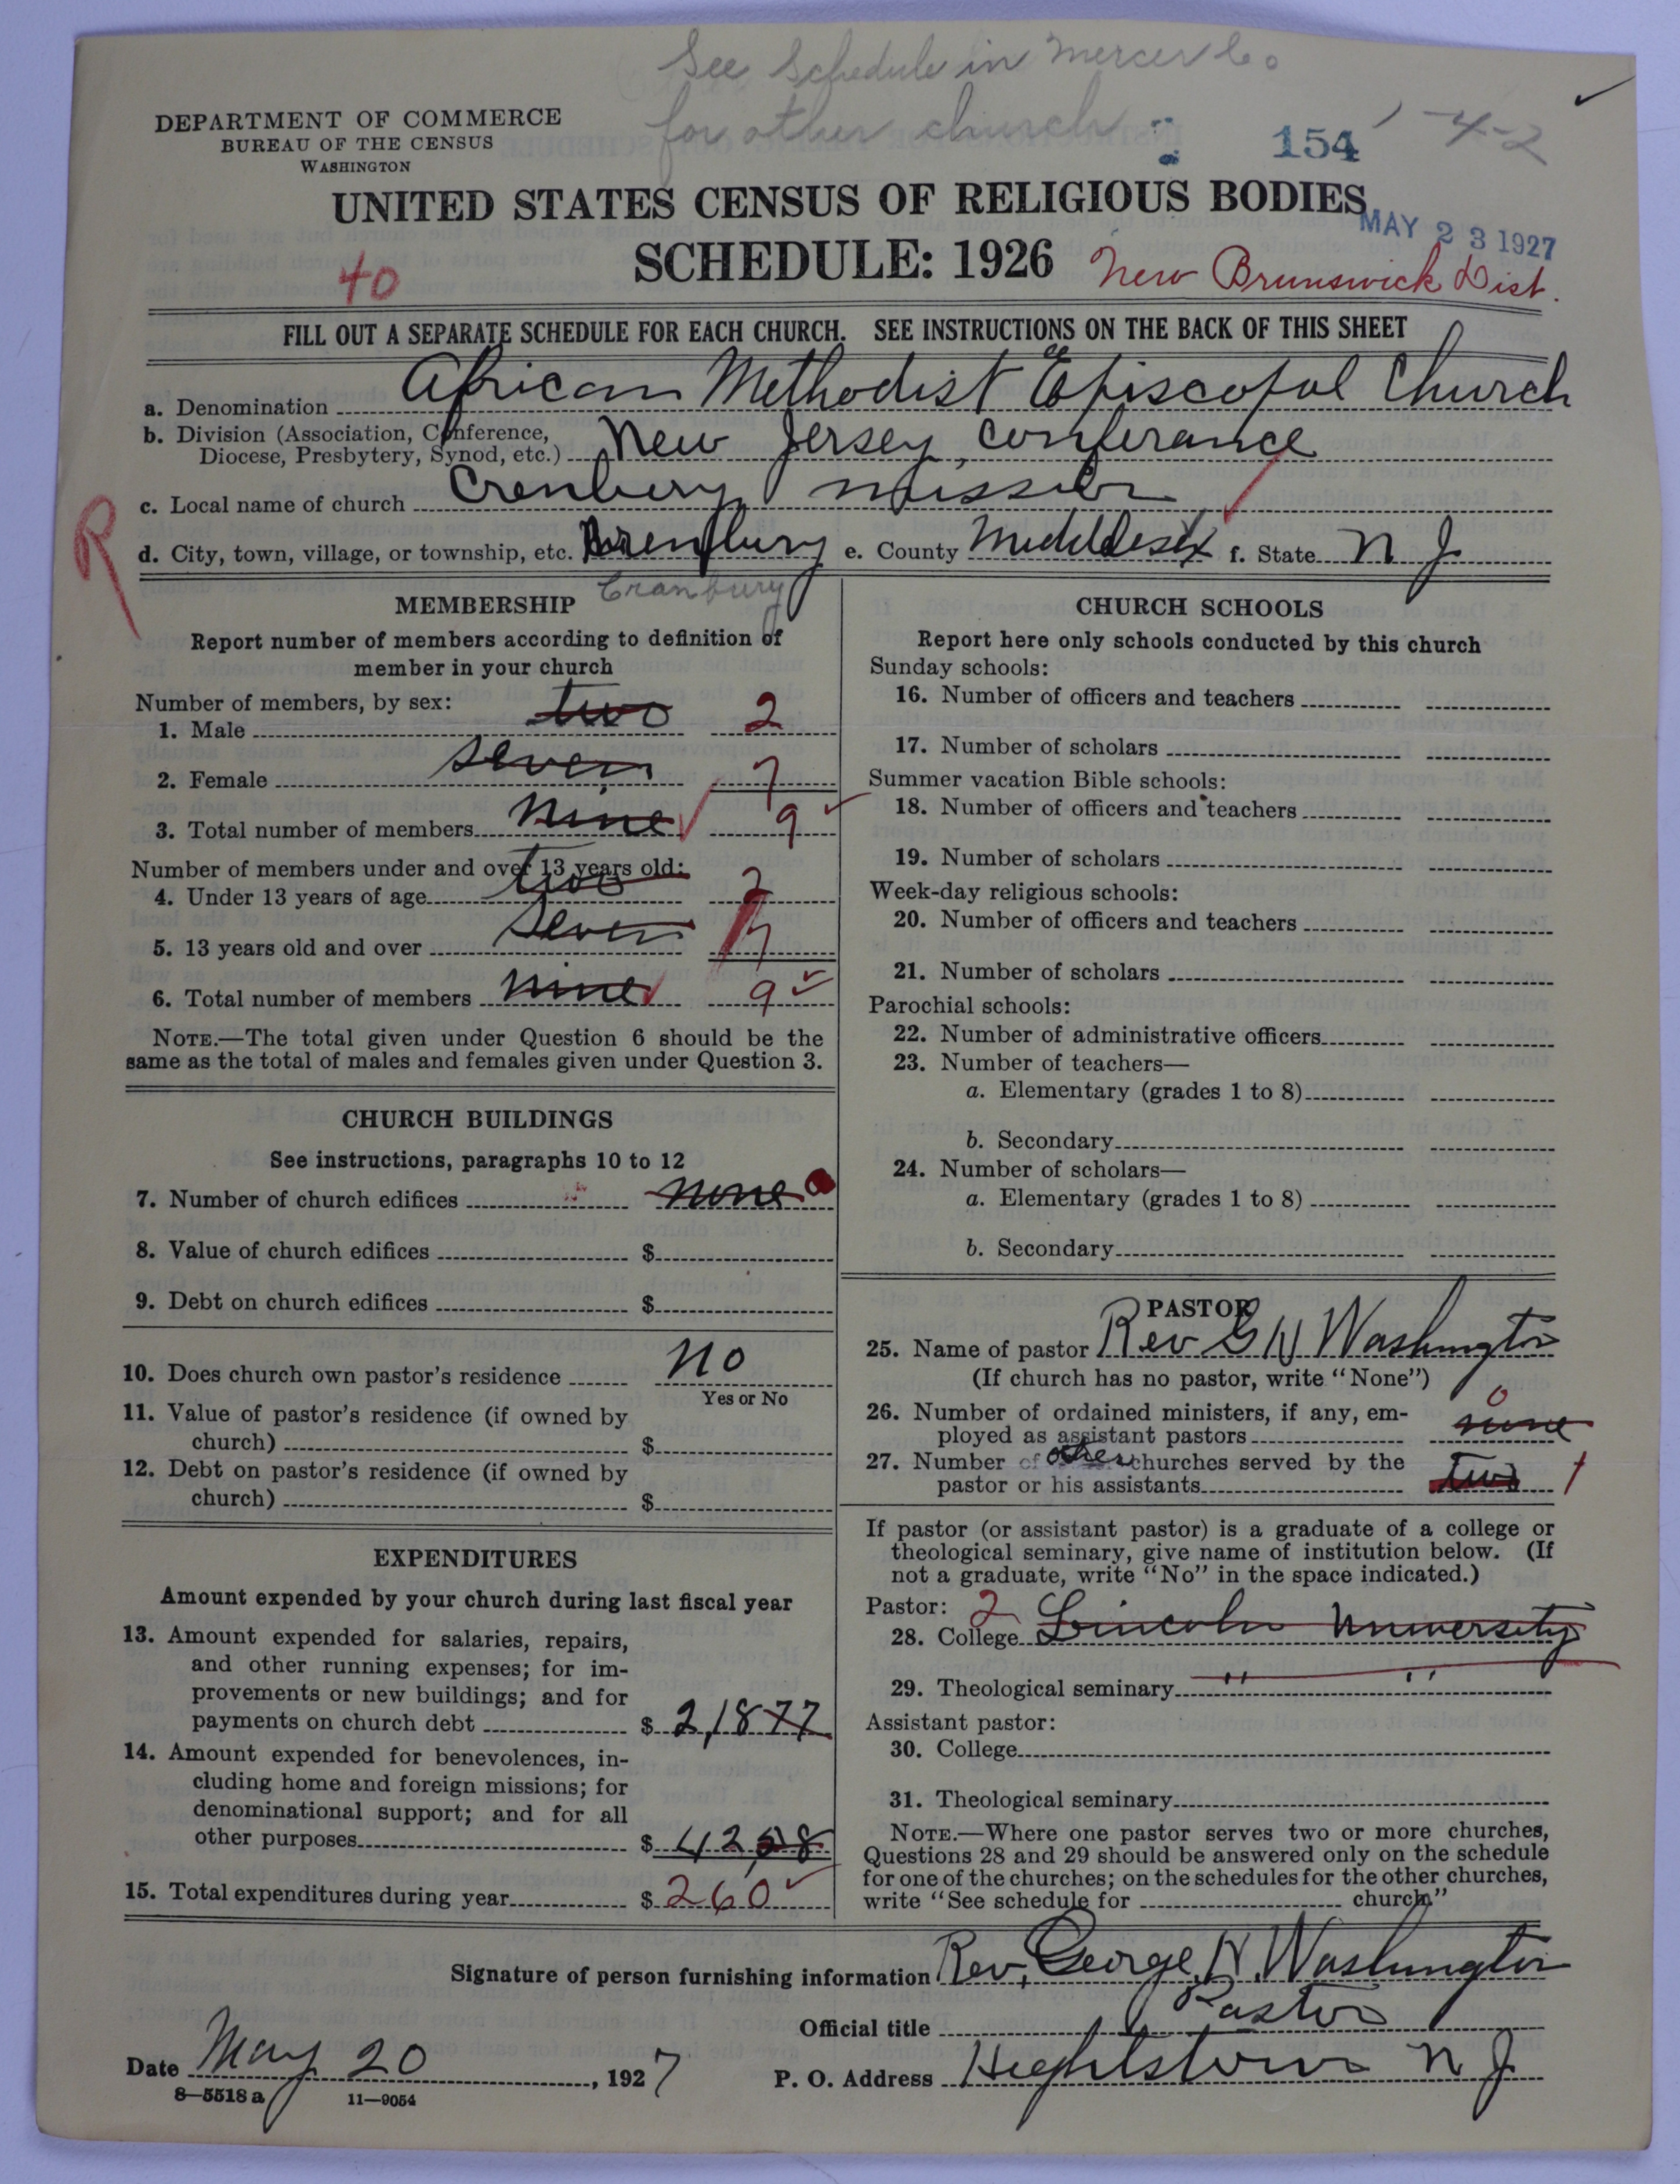 See Schedule in Mercer Co
for other church
DEPARTMENT OF COMMERCE
BUREAU OF THE CENSUS
WASHINGTON
154
-4-2
UNITED STATES CENSUS OF RELIGIOUS BODIES
MAY 23 1927
SCHEDULE: 1926
40
New Brunswick Dist.
FILL OUT A SEPARATE SCHEDULE FOR EACH CHURCH. SEE INSTRUCTIONS ON THE BACK OF THIS SHEET
a. Denomination African Methodist Episcopal Church
b. Division (Association, Conference, Diocese, Presbytery, Synod, etc.) New Jersey, Conferance
c. Local name of church Crenbury mission
R
d. City, town, village, or township, etc. Crenbury e. County Middlesex f. State N J
Cranbury
MEMBERSHIP
Report number of members according to definition of
member in your church
Number of members, by sex:
1. Male two 2
2. Female seven 7
3. Total number of members nine 9
Number of members under and over 13 years old:
4. Under 13 years of age two 2
5. 13 years old and over seven 7
6. Total number of members nine 9
NOTE.—The total given under Question 6 should be the
same as the total of males and females given under Question 3.
CHURCH BUILDINGS
See instructions, paragraphs 10 to 12
7. Number of church edifices none
8. Value of church edifices $
9. Debt on church edifices $
10. Does church own pastor's residence No
Yes or No
11. Value of pastor's residence (if owned by
church) $
12. Debt on pastor's residence (if owned by
church) $
EXPENDITURES
Amount expended by your church during last fiscal year
13. Amount expended for salaries, repairs,
and other running expenses; for im-
provements or new buildings; and for
payments on church debt $ 2,1877
14. Amount expended for benevolences, in-
cluding home and foreign missions; for
denominational support; and for all
other purposes $
15. Total expenditures during year $ 260
CHURCH SCHOOLS
Report here only schools conducted by this church
Sunday schools:
16. Number of officers and teachers
17. Number of scholars
Summer vacation Bible schools:
18. Number of officers and teachers
19. Number of scholars
Week-day religious schools:
20. Number of officers and teachers
21. Number of scholars
Parochial schools:
22. Number of administrative officers
23. Number of teachers—
a. Elementary (grades 1 to 8)
b. Secondary
24. Number of scholars—
a. Elementary (grades 1 to 8)
b. Secondary
PASTOR
25. Name of pastor Rev G H Washington
(If church has no pastor, write "None")
26. Number of ordained ministers, if any, em-
ployed as assistant pastors none 0
27. Number of other churches served by the
pastor or his assistants two 1
If pastor (or assistant pastor) is a graduate of a college or
theological seminary, give name of institution below. (If
not a graduate, write "No" in the space indicated.)
Pastor: 2
28. College Lincoln University
29. Theological seminary " "
Assistant pastor:
30. College
31. Theological seminary
NOTE.—Where one pastor serves two or more churches,
Questions 28 and 29 should be answered only on the schedule
for one of the churches; on the schedules for the other churches,
write "See schedule for church."
Signature of person furnishing information Rev, George, H. Washington
Official title Pastor
Date May 20, 1927
P. O. Address Hightstown N J
8—5518 a 11—9054